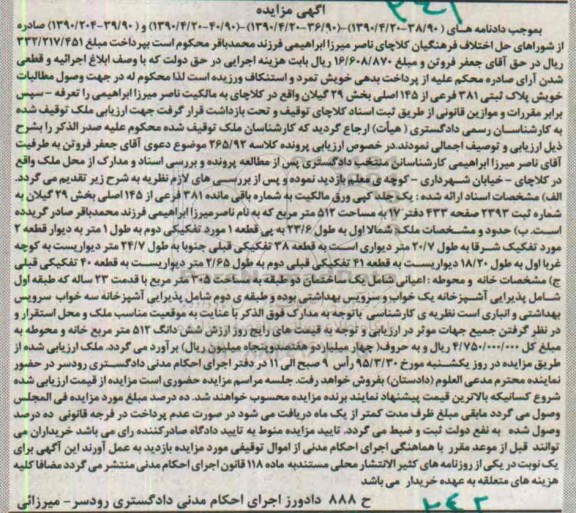 آگهی مزایده
بموجب دادنامه های (۳۸/۹۰-۱۳۹۰/۴/۲۰)-(۳۶/۹۰-۱۳۹۰/۴/۲۰)-(۴۰/۹۰-۱۳۹۰/۴/۲۰) و (۳۹/۹۰-۱۳۹۰/۲۰۴) صادره
از شوراهای حل اختلاف فرهنگیان کلاچای ناصر میرزا ابراهیمی فرزند محمدباقر محکوم است بپرداخت مبلغ ۳۳۲/۲۱۷/۴۵۱
ریال در حق آقای جعفر فروتن و مبلغ ۱۶/۶۰۸/۸۷۰ ریال بابت هزینه اجرایی در حق دولت که با وصف ابلاغ اجرائیه و قطعی
شدن آرای صادره محکم علیه از پرداخت بدهی خویش تمرد و استنکاف ورزیده است لذا محکوم له در جهت وصول مطالبات
خویش پلاک ثبتی ۳۸۱ فرعی از ۱۴۵ اصلی بخش ۲۹ گیلان واقع در کلاچای به مالکیت ناصر میرزا ابراهیمی را تعرفه - سپس
برابر مقررات و موازین قانونی از طریق ثبت اسناد کلاچای توقیف و تحت بازداشت قرار گرفت جهت ارزیابی ملک توقیف شده
به کارشناسان رسمی دادگستری (هیأت) ارجاع گردید که کارشناسان ملک توقیف شده محکوم علیه صدر الذکر را بشرح
ذیل ارزیابی و توصیف اجمالی نمودند.در خصوص ارزیابی پرونده کلاسه ۲۶۵/۹۲ موضوع دعوی آقای جعفر فروتن به طرفیت
آقای ناصر میرزا ابراهیمی کارشناسان منتخب دادگستری پس از مطالعه پرونده و بررسی اسناد و مدارک از محل ملک واقع
در کلاچای - خیابان شهرداری - کوچه ی معلم بازدید نموده و پس از بررسی های لازم نظریه به شرح زیر تقدیم می گردد.
الف) مشخصات اسناد ارائه شده : یک جلد کپی ورق مالکیت به شماره باقی مانده ۳۸۱ فرعی از ۱۴۵ اصلی بخش ۲۹ گیلان به
شماره ثبت ۲۳۹۳ صفحه ۴۳۳ دفتر ۱۷ به مساحت ۵۱۲ متر مربع که به نام ناصر میرزا ابراهیمی فرزند محمدباقر صادر گردیده
است. ب) حدود و مشخصات ملک : شمالا اول به طول ۲۳/۶ به پی قطعه ۱ مورد تفکیکی دوم به طول ۱ متر به دیوار قطعه ۲
مورد تفکیک شرقا به طول ۲۰/۷ متر دیواری است به قطعه ۳۸ تفکیکی قبلی جنوبا به طول ۲۴/۷ متر دیواریست به کوچه
غربا اول به طول ۱۸/۲۰ دیواریست به قطعه ۴۱ تفکیکی قبلی دوم به طول ۲/۶۵ متر دیواریست به قطعه ۴۰ تفکیکی قبلی
ج) مشخصات خانه و محوطه : اعیانی شامل یک ساختمان دو طبقه به مساحت ۲۰۵ متر مربع با قدمت ۲۳ ساله که طبقه اول
شامل پذیرایی آشپزخانه یک خواب و سرویس بهداشتی بوده و طبقه ی دوم شامل پذیرایی آشپزخانه سه خواب سرویس
بهداشتی و انباری است نظریه ی کارشناسی با توجه به مدارک فوق الذکر با عنایت به موقعیت مناسب ملک و محل استقرار و
در نظر گرفتن جمیع جهات موثر در ارزیابی و توجه به قیمت های رایج روز ارزش شش دانگ ۵۱۲ متر مربع خانه و محوطه به
مبلغ کل ۴/۷۵۰/۰۰۰/۰۰۰ ریال و به حروف( چهار میلیارد و هفتصد و پنجاه میلیون ریال) برآورد می گردد. ملک ارزیابی شده از
طریق مزایده در روز یکشنبه مورخ ۹۵/۳/۳۰ رأس ۹ صبح الی ۱۱ در دفتر اجرای احکام مدنی دادگستری رودسر در حضور
نماینده محترم مدعی العلوم (دادستان) بفروش خواهد رفت. جلسه مراسم مزایده حضوری است مزایده از قیمت ارزیابی شده
شروع کسانیکه بالاترین قیمت پیشنهاد نمایند برنده مزایده محسوب خواهند شد. ده درصد مبلغ مورد مزایده فی المجلس
وصول می گردد مابقی مبلغ ظرف مدت کمتر از یک ماه دریافت می شود در صورت عدم پرداخت در فرجه قانونی ده درصد
وصول شده به نفع دولت ثبت و ضبط می گردد. تایید مزایده منوط به تایید دادگاه صادرکننده رای می باشد خریداران می
توانند قبل از موعد مقرر با هماهنگی اجرای احکام مدنی از اموال توقیفی مورد مزایده بازدید به عمل آورند این آگهی برای
یک نوبت در یکی از روزنامه های کثیر الانتشار محلی مستند به ماده ۱۱۸ قانون اجرای احکام مدنی منتشر می گردد مضافا کلیه
هزینه های متعلقه به عهده خریدار می باشد
ح ۸۸۸ دادورز اجرای احکام مدنی دادگستری رودسر - میرزائی